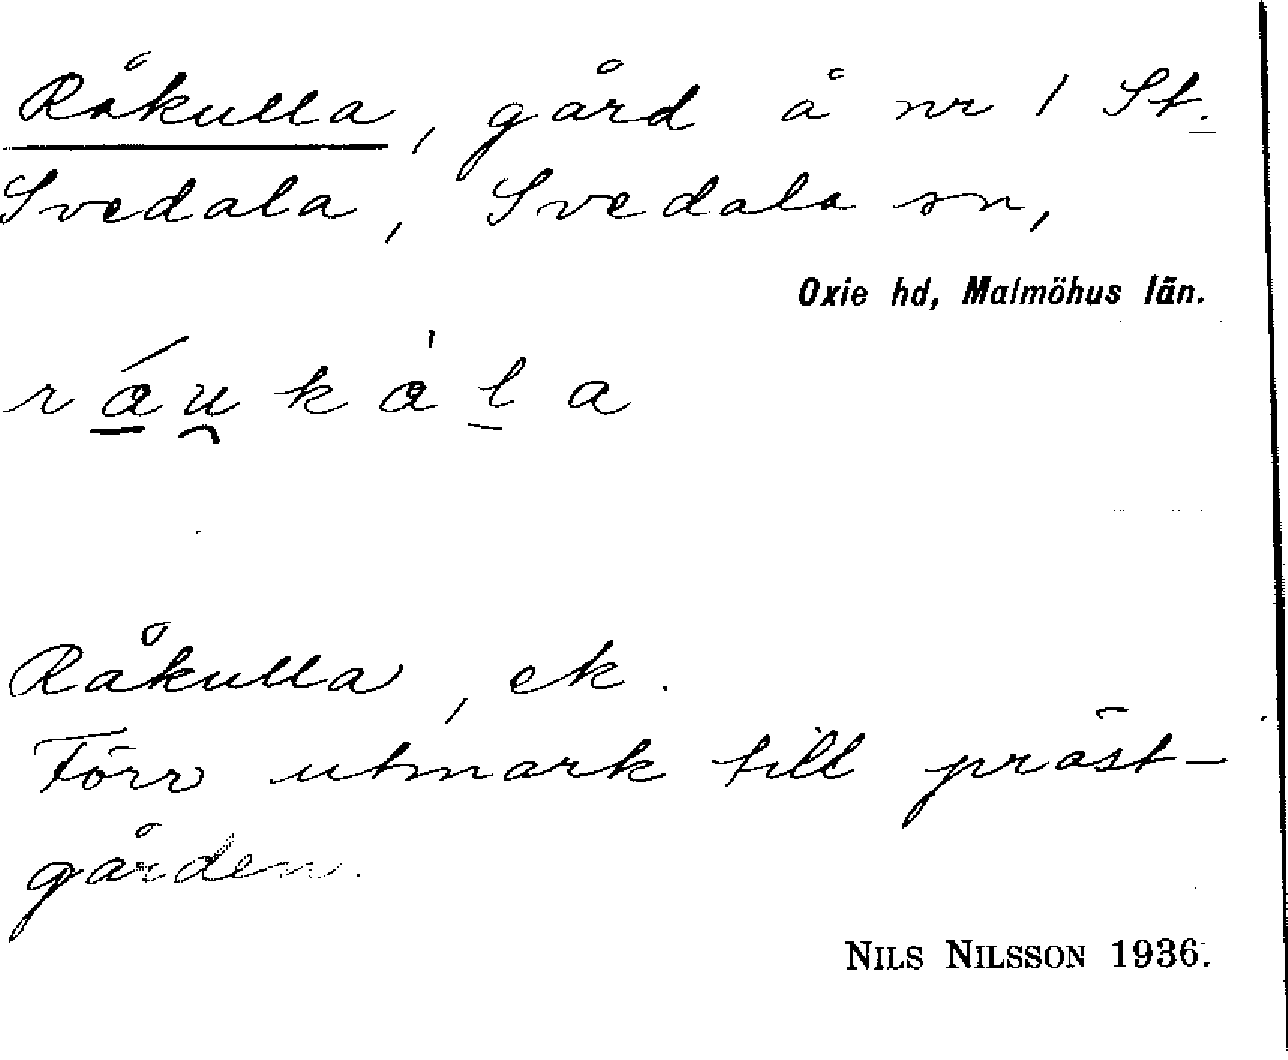 Råkulla, gård å nr 1 St.
Svedala, Svedala sn,
Oxie hd, Malmöhus län.
ráu̯kàla
Råkulla, ek.
Förr utmark till präst-
gården.
NILS NILSSON 1936.